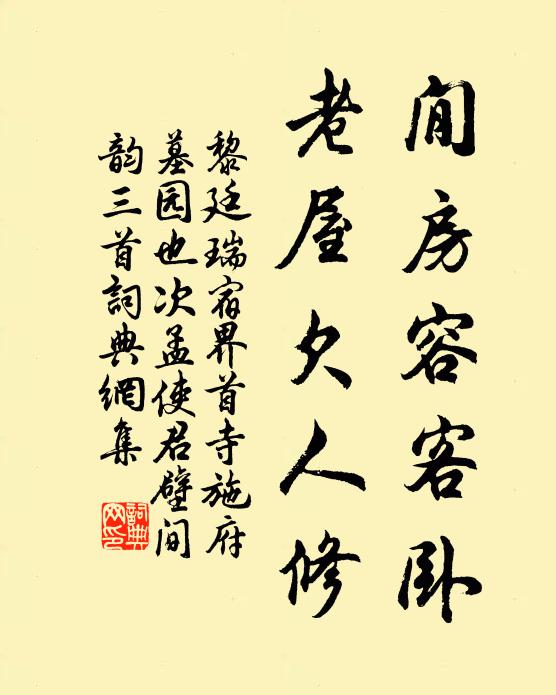 闲房容客卧
老屋欠人修
黎廷瑞宿界首寺施府
墓园也次孟使君壁间
韵三首詞典網集
詞典网印